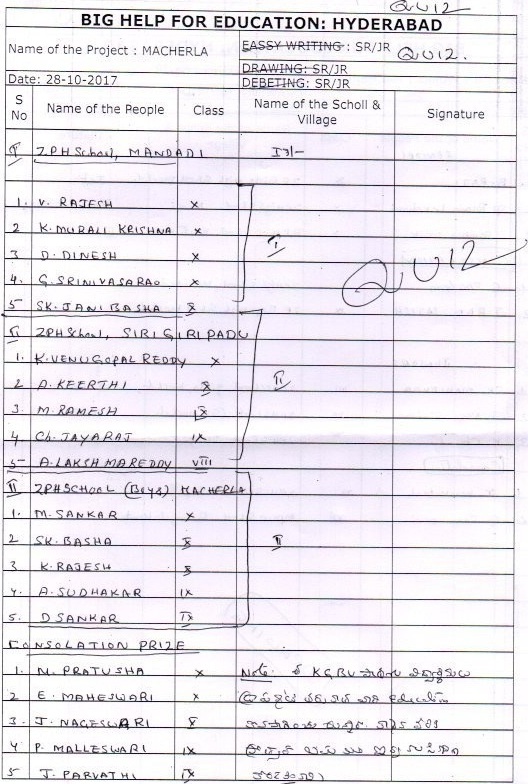 QUIZ
BIG HELP FOR EDUCATION: HYDERABAD
Name of the Project : MACHERLA EASSY WRITING : SR/JR QUIZ.
DRAWING: SR/JR
Date: 28-10-2017 DEBETING: SR/JR
S No Name of the People Class Name of the Scholl & Village Signature
I ZPH School, MANDADI
1. V. RAJESH X
2 K. MURALI KRISHNA X I
3 D. DINESH X
4. G. SRINIVASARAO X QUIZ
5 SK. JANI BASHA X
II ZPH School, SIRIGIRIPADU
1. K. VENUGOPAL REDDY X
2 A. KEERTHI X II
3. M. RAMESH IX
4 Ch. JAYARAJ IX
5 A. LAKSHMAREDDY VIII
II ZPHSCHOOL (Boys) MACHERLA
1. M. SANKAR X
2 SK. BASHA X II
3 K. RAJESH X
4. A. SUDHAKAR IX
5. D SANKAR IX
CONSOLATION PRIZE
1. M. PRATUSHA X Note: KGBV
2 E. MAHESWARI X
3. J. NAGESWARI X
4 P. MALLESWARI IX
5 J. PARVATHI IX